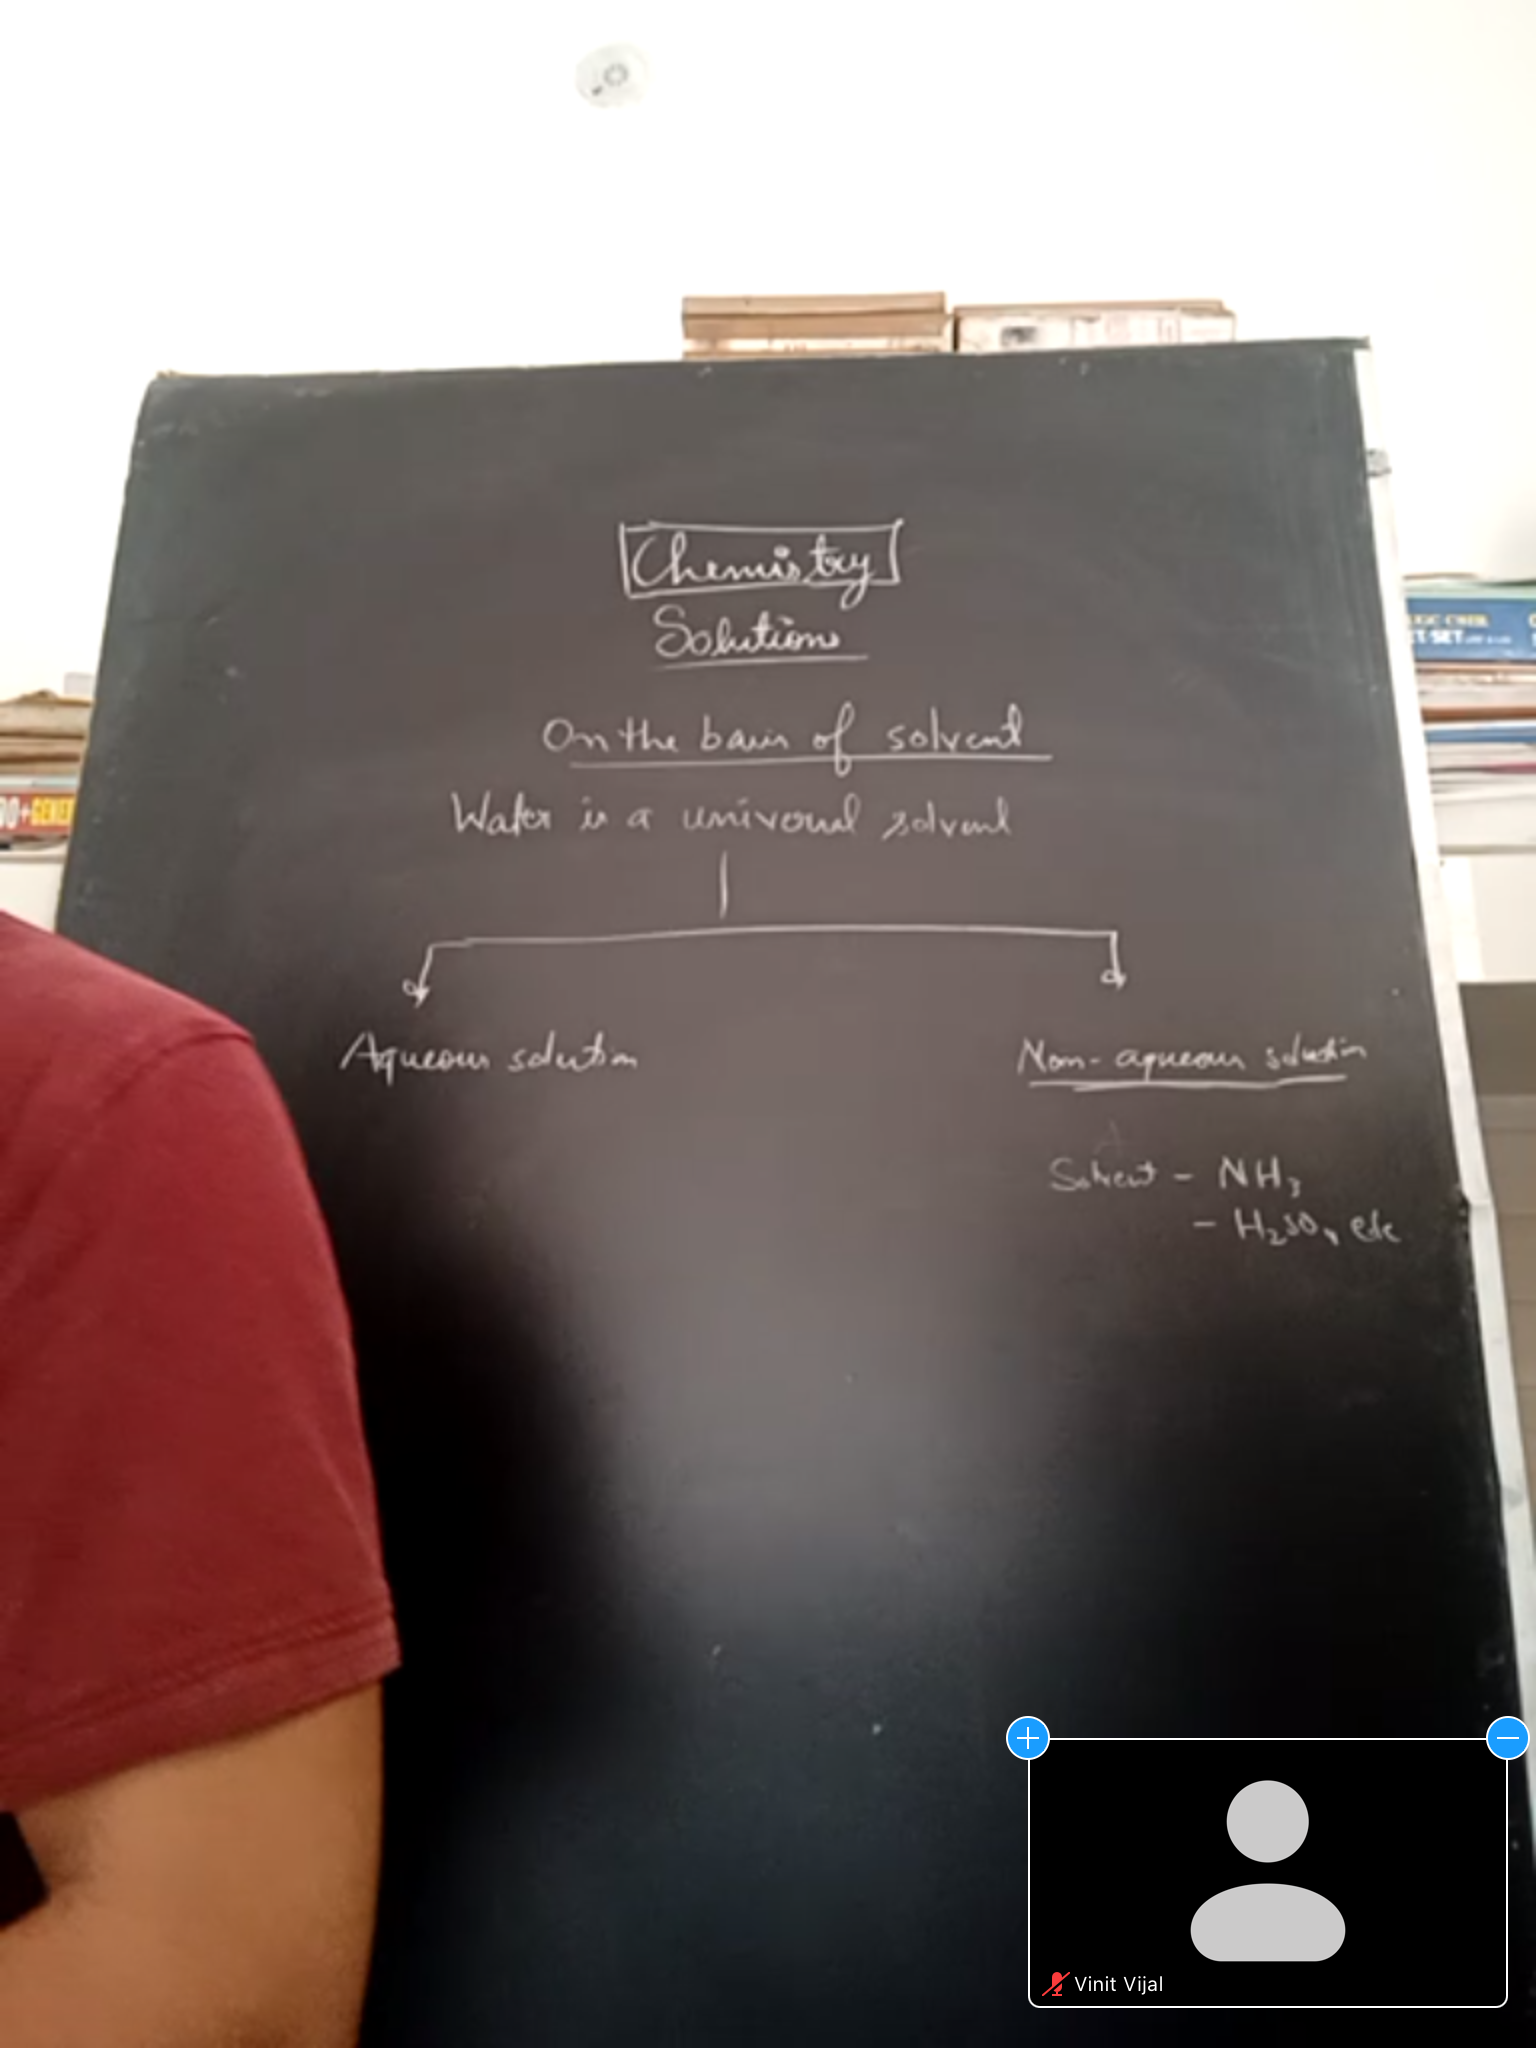 Chemistry
Solutions
On the basis of solvent
Water is a universal solvent
Aqueous solution
Non-aqueous solution
Solvent - NH3
- H2SO4 etc
0+GENER
Vinit Vijal